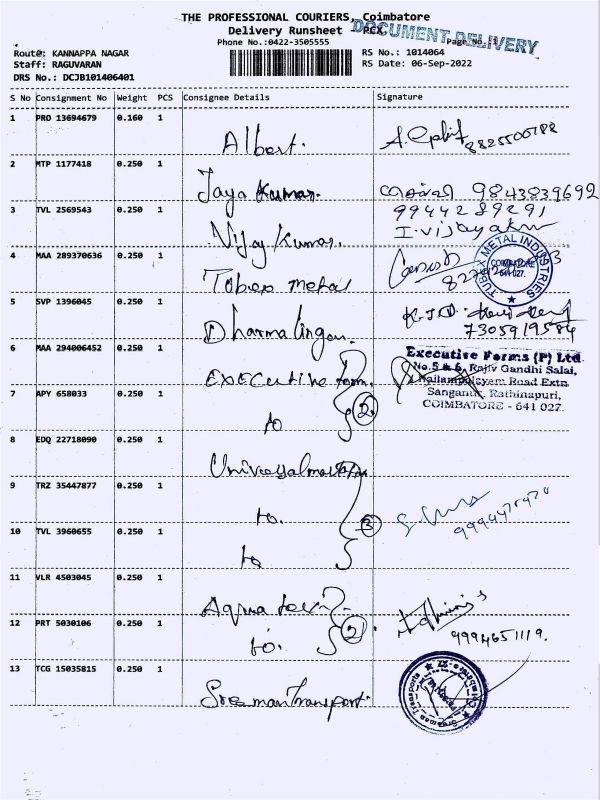 THE PROFESSIONAL COURIERS, Coimbatore
Delivery Runsheet PCX
DOCUMENT DELIVERY
Phone No.:0422-3505555 Page No.:1
Route: KANNAPPA NAGAR RS No.: 1014064
Staff: RAGUVARAN RS Date: 06-Sep-2022
DRS No.: DCJB101406401
S No Consignment No Weight PCS Consignee Details Signature
1 PRO 13694679 0.160 1
Albert. 8825500788
2 MTP 1177418 0.250 1
Jaya Kumar. 9843839692
3 TVL 2569543 0.250 1
9944289291
Vijay Kumar. I. vijayakm
4 MAA 289370636 0.250 1
Tubex metal
TUBEX METAL INDUSTRIES
COIMBATORE
641 027.
5 SVP 1396045 0.250 1
Dharmalingam. 7305919584
6 MAA 294006452 0.250 1
Executive form.
Executive Forms (P) Ltd.
No.5 & 6, Rajiv Gandhi Salai,
Nallampalayam Road Extn.
Sanganur, Rathinapuri,
COIMBATORE - 641 027.
7 APY 658033 0.250 1
to 2
8 EDQ 22718090 0.250 1
9 TRZ 35447877 0.250 1
to. 3
10 TVL 3960655 0.250 1
to
11 VLR 4503045 0.250 1
Aqua
12 PRT 5030106 0.250 1
to. 2 9994651119.
13 TCG 15035815 0.250 1
Sreeman Transport.